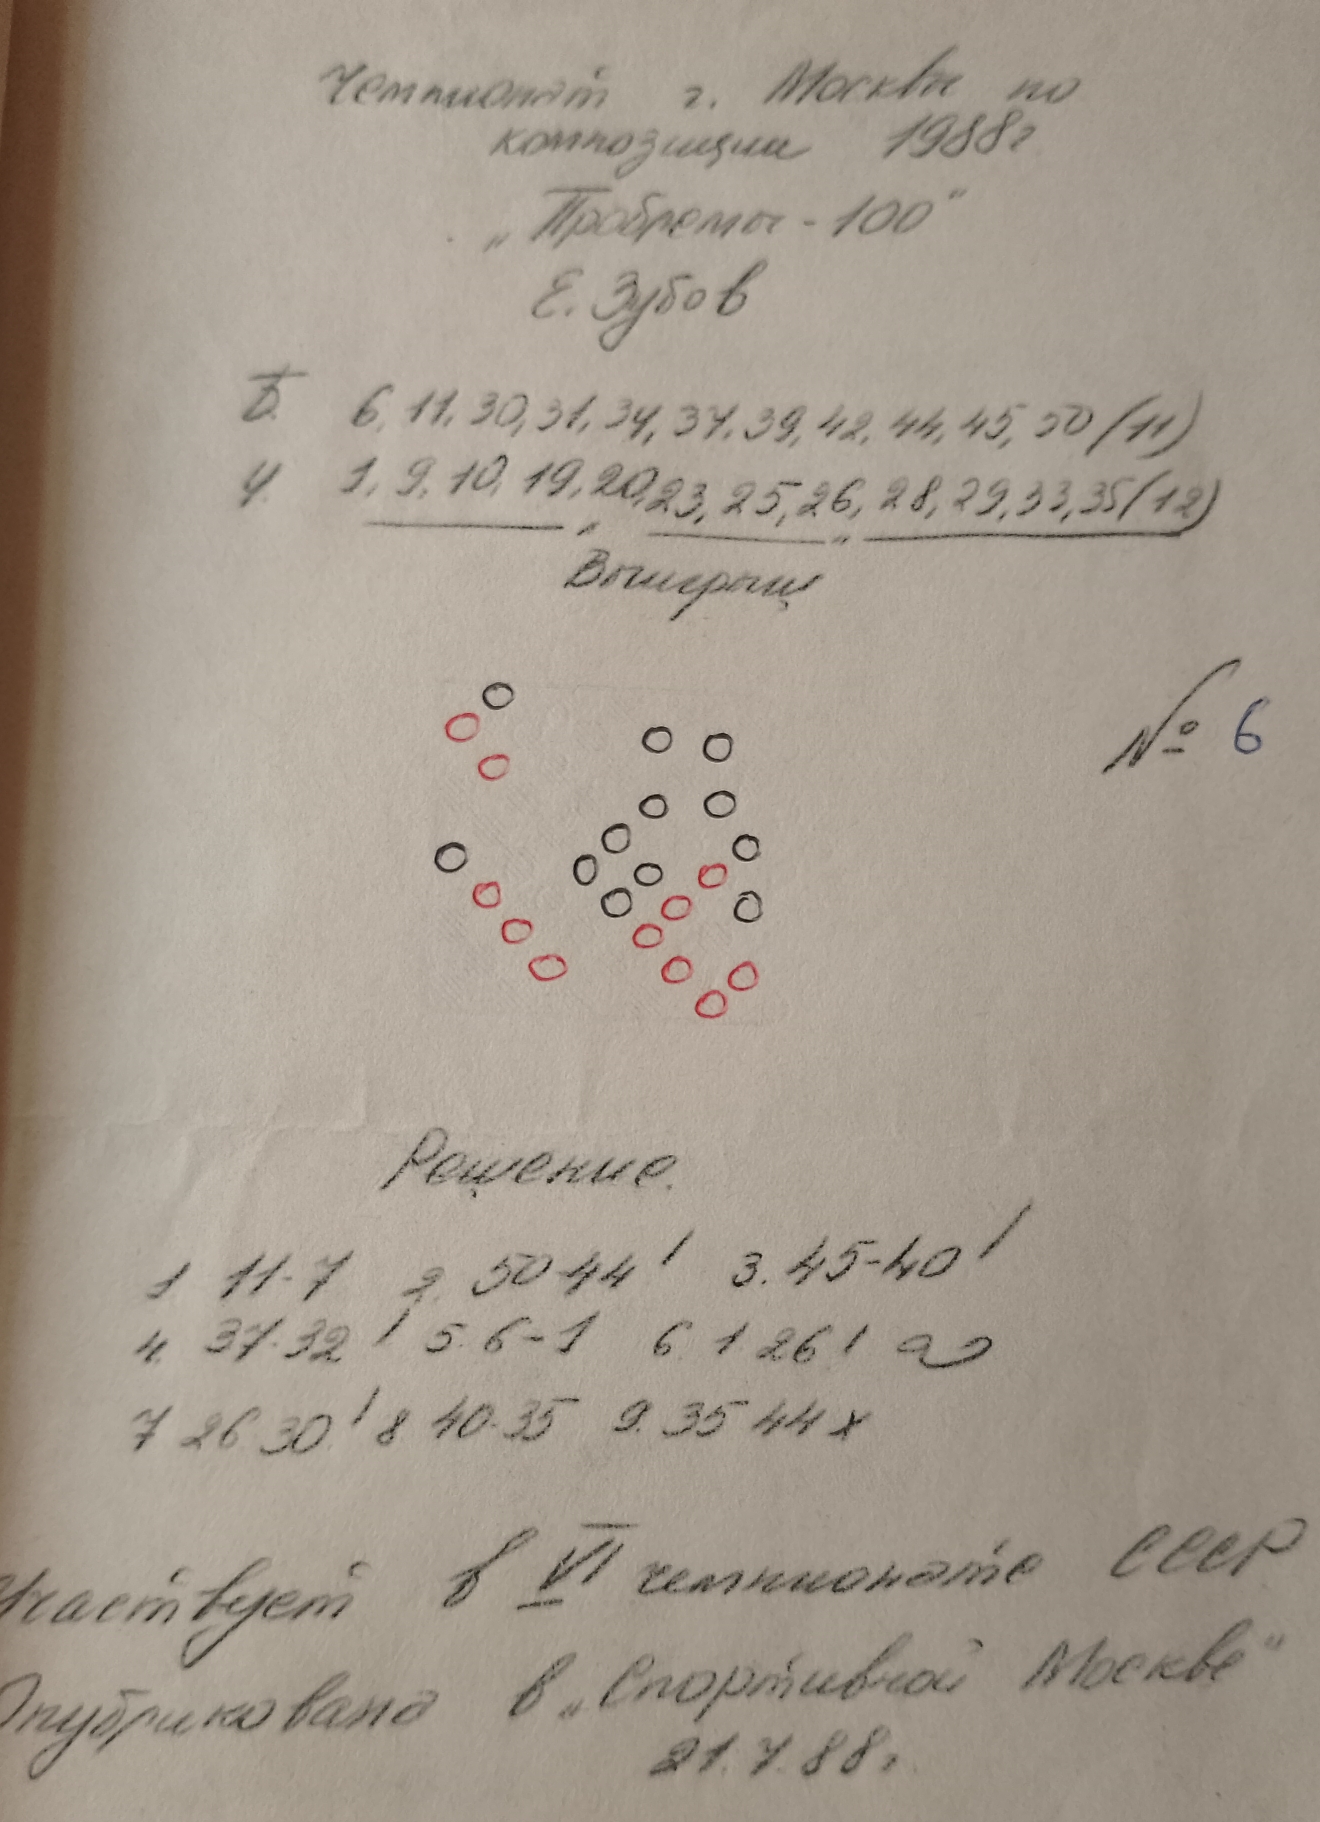 Чемпионат г. Москвы по
композиции 1988г
"Проблемы-100"
Е. Зубов
Б. 6, 11, 30, 31, 34, 37, 39, 42, 44, 45, 50 (11)
Ч. 1, 9, 10, 19, 20, 23, 25, 26, 28, 29, 33, 35 (12)
Выигрыш
№ 6
Решение.
1 11-7 2. 50-44! 3. 45-40!
4. 37-32! 5. 6-1 6. 1 26!
7 26 30! 8 40-35 9. 35 44 x
Участвует в VI чемпионате СССР
Опубликована в "Спортивной Москве"
21.7.88г.